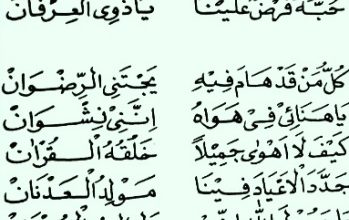 حُبُّهُ فَرْضٌ عَلَيْنَا يَاذَوِي الْعِرْفَانْ
كُلُّ مَنْ قَدْ هَامَ فِيهِ يَجْتَنِي الرِّضْوَانْ
يَاهَنَائِي فِيْ هَوَاهُ اِنَّنِيْ نِشْوَانْ
كَيْفَ لَا اَهْوَى جَمِيْلاً خَلْقُهُ الْقُرْانْ
جَدَّدَ الْاَعْيَادَ فِيْنَا مَوْلِدُ الْعَدْنَانْ